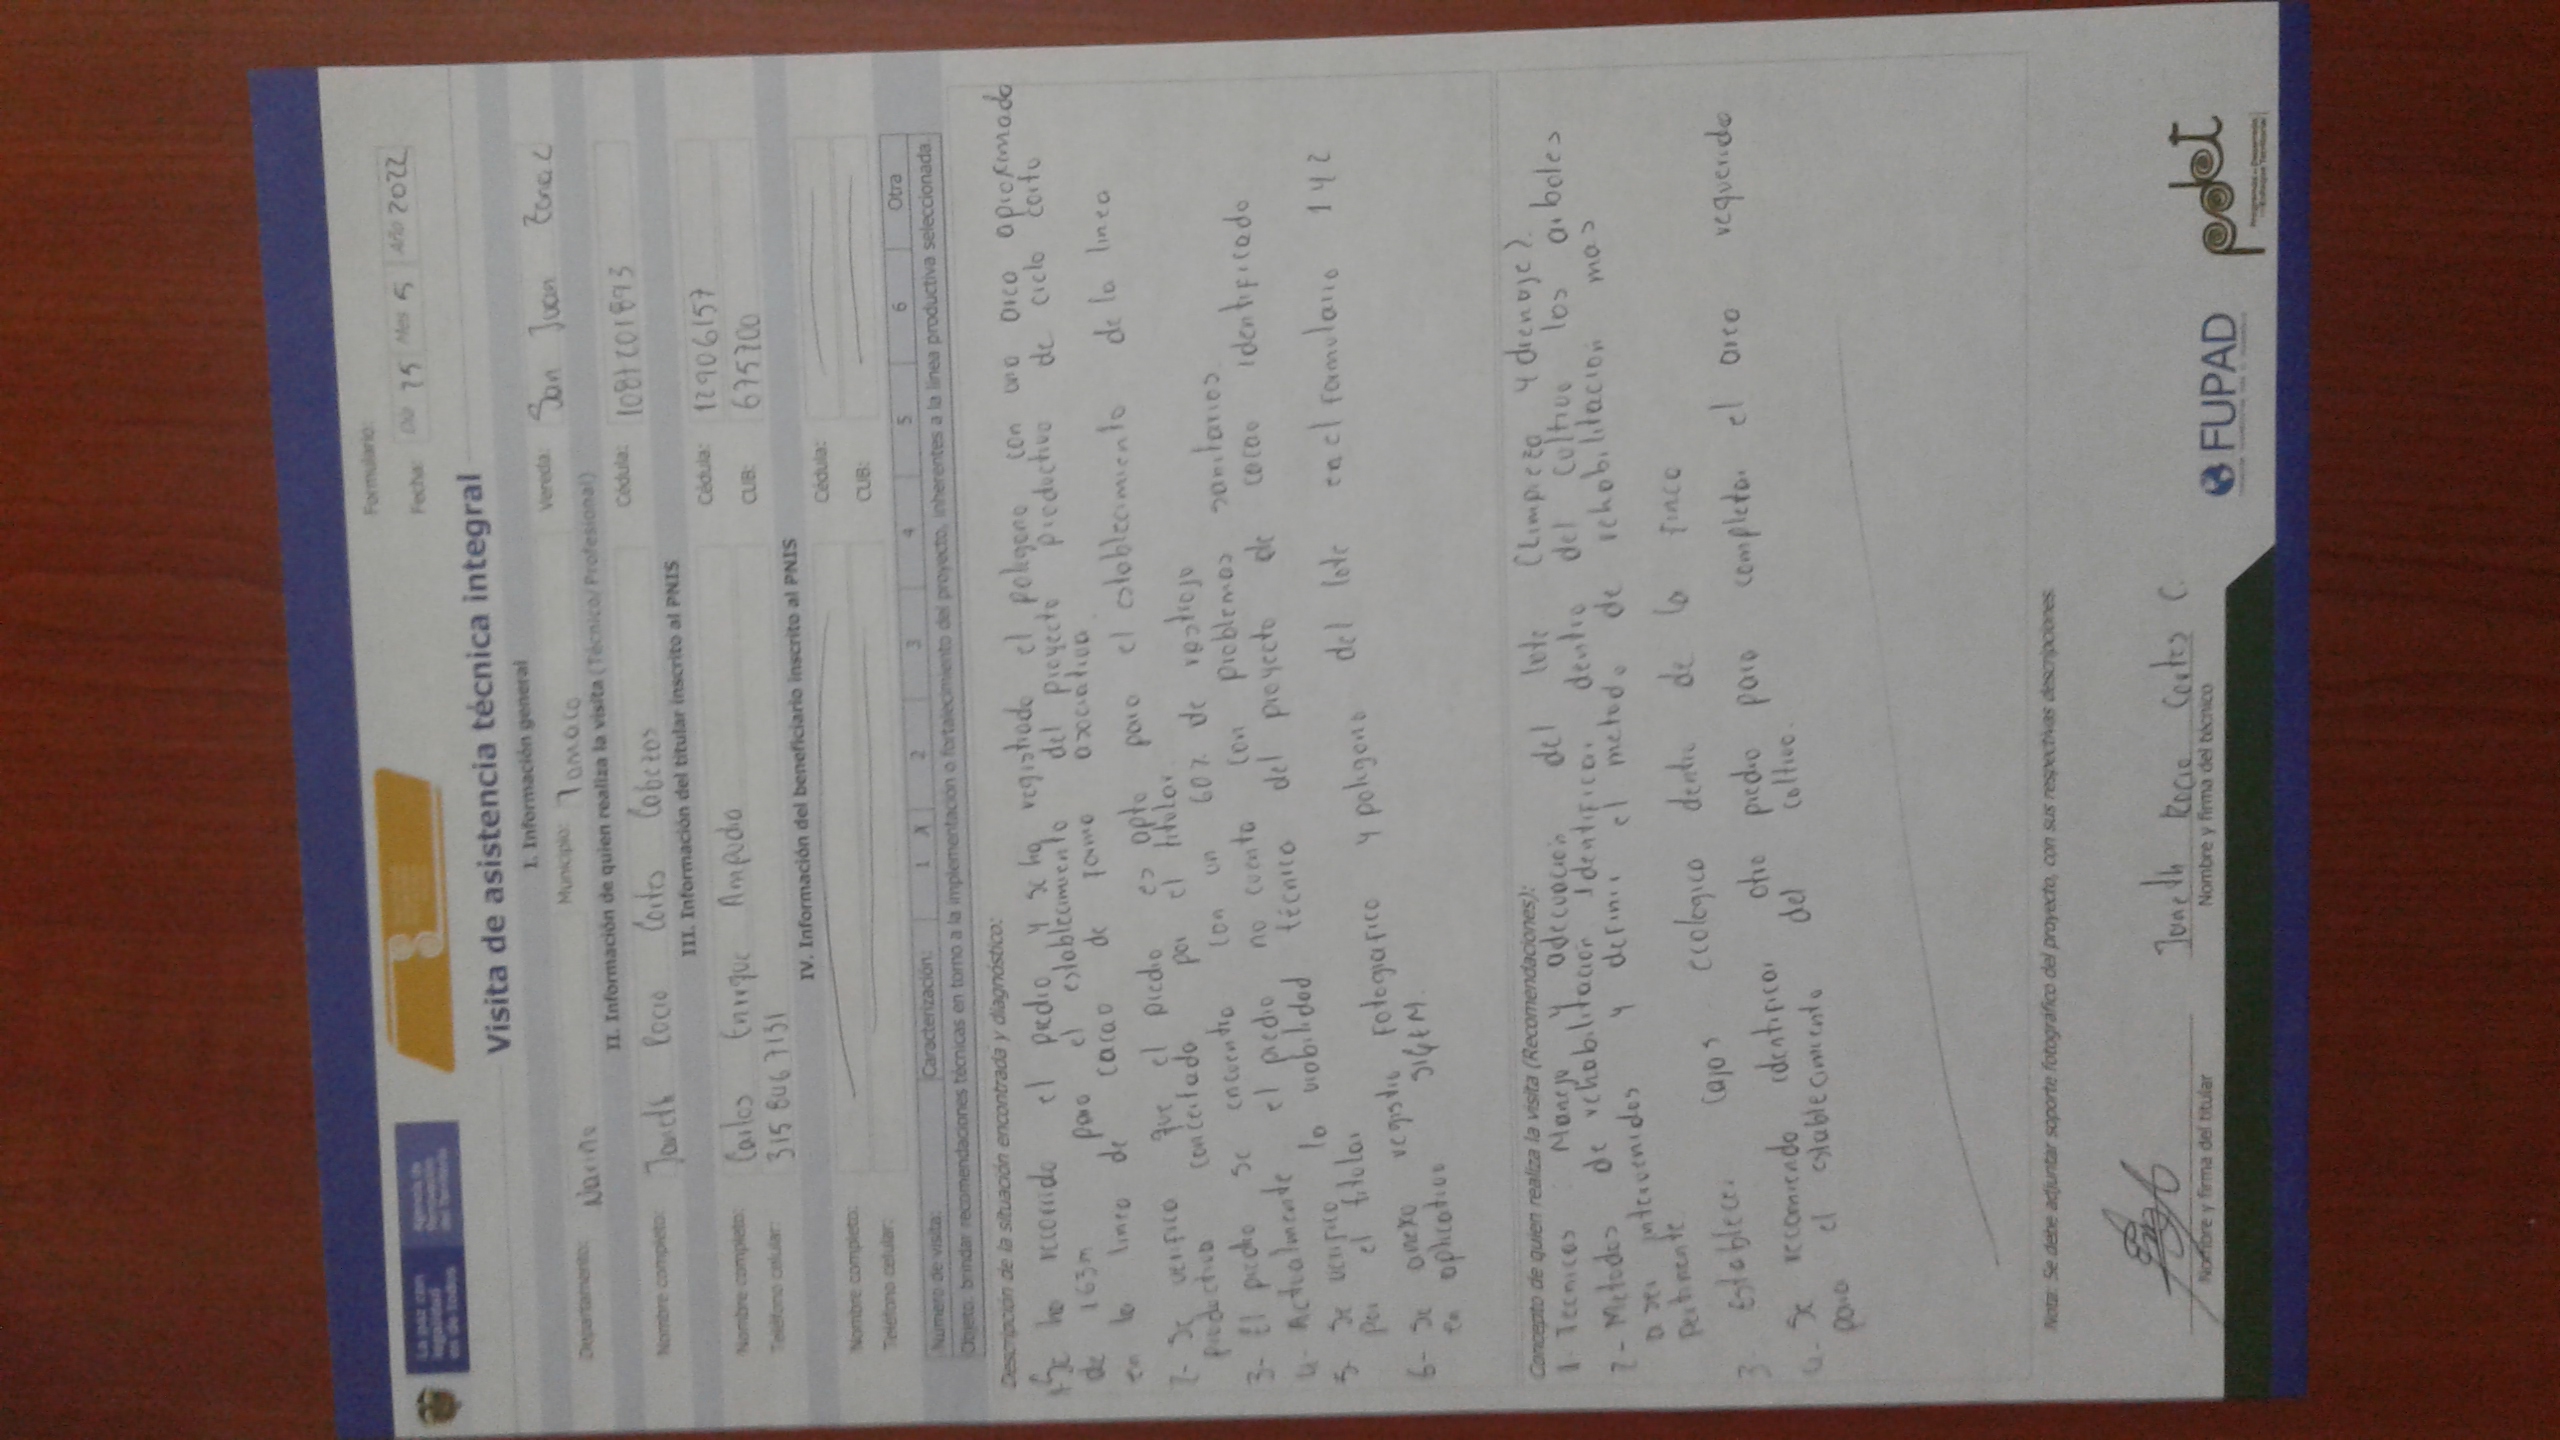 La paz con legalidad es de todos
Agencia de Renovación del Territorio
Formulario:
Fecha: Día 25 Mes 5 Año 2022
Visita de asistencia técnica integral
I. Información general
Departamento: Nariño Municipio: Tumaco Vereda: San Juan Zona 2
II. Información de quien realiza la visita (Técnico/Profesional)
Nombre completo: Janeth Rocio Cortes Cabezas Cédula: 1087201893
III. Información del titular inscrito al PNIS
Nombre completo: Carlos Enrique Ampudia Cédula: 12906157
Teléfono celular: 3158467131 CUB: 675700
IV. Información del beneficiario inscrito al PNIS
Nombre completo: Cédula:
Teléfono celular: CUB:
Número de visita: Caracterización: 1 X 2 3 4 5 6 Otra
Objeto: brindar recomendaciones técnicas en torno a la implementación o fortalecimiento del proyecto, inherentes a la línea productiva seleccionada.
Descripción de la situación encontrada y diagnóstico:
1- Se ha recorrido el predio y se ha registrado el poligono con una area aproximada
de 163m para el establecimiento del proyecto productivo de ciclo corto
en la linea de cacao de forma asociativa
2- Se verifico que el predio es apto para el establecimiento de la linea
productiva concertado por el titular
3- El predio se encuentra con un 60% de rastrojo
4- Actualmente el predio no cuenta con problemas sanitarios.
5- Se verifico la viabilidad técnica del proyecto de cacao identificado
por el titular
6- Se anexo registro fotografico y poligono del lote en el formulario 1 y 2
en aplicativo SIGEM.
Concepto de quien realiza la visita (Recomendaciones):
1- Tecnicas Manejo y adecuación del lote (Limpieza y drenaje).
2- Metodos de rehabilitación Identificar dentro del cultivo los arboles
a ser intervenidos y definir el metodo de rehabilitacion mas
pertinente.
3- Establecer cajas ecologica dentro de la finca
4- Se recomienda identificar otro predio para completar el area requerida
para el establecimiento del cultivo.
Nota: Se debe adjuntar soporte fotográfico del proyecto, con sus respectivas descripciones.
Janeth Rocio Cortes C.
Nombre y firma del titular Nombre y firma del técnico
FUPAD
pdet